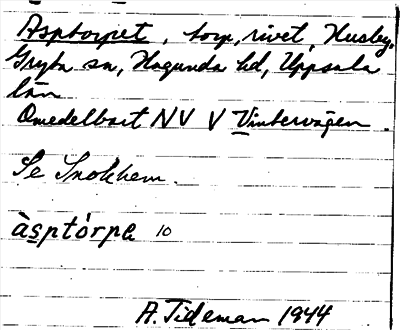 Asptorpet, torp, rivet, Husby,
Gryta sn, Hagunda hd, Uppsala
län
Omedelbart NV V Vintervägen.
Se Snokhem.
àsptórpe 10
A. Tideman 1944